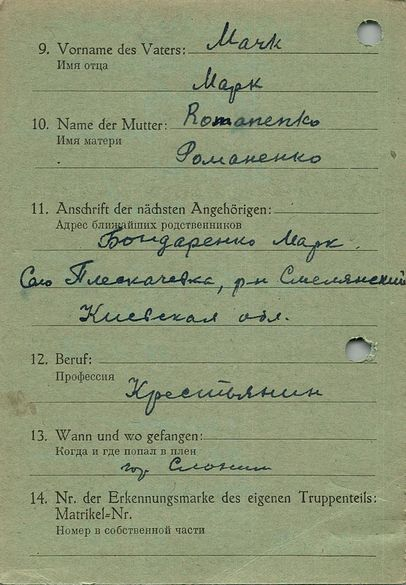 9. Vorname des Vaters: Маrk
Имя отца
Марк
10. Name der Mutter: Romanenko
Имя матери
Романенко
11. Anschrift der nächsten Angehörigen:
Адрес ближайших родственников
Бондаренко Марк.
Село Плескачевка, р-н Смелянский
Киевская обл.
12. Beruf:
Профессия
Крестьянин
13. Wann und wo gefangen:
Когда и где попал в плен
гор. Слоним
14. Nr. der Erkennungsmarke des eigenen Truppenteils:
Matrikel=Nr.
Номер в собственной части